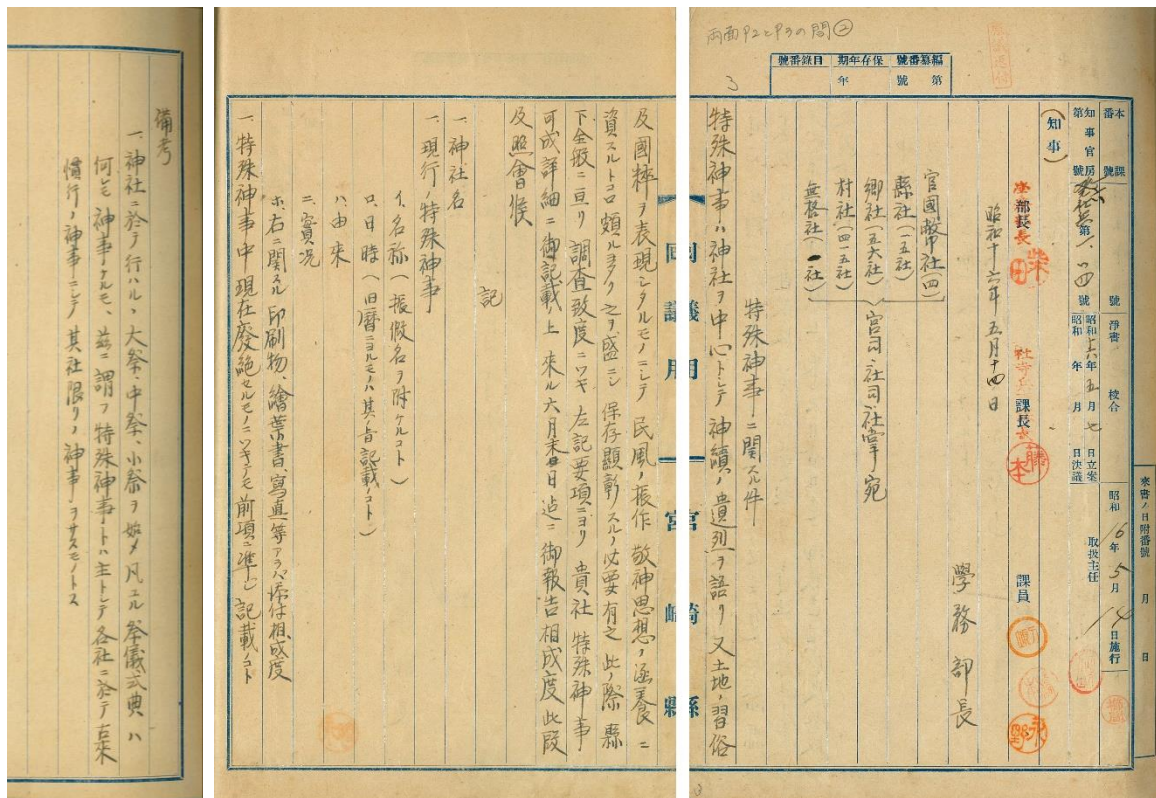 両面P2とP3の間②
3
編纂番號
第 號
保存年期
年
目錄番號
來書ノ日附番號
月 日
本課
番號 號 淨書 校合 昭和16年5月14日施行
知事官房
第 號 第 四號 昭和十六年五月七日立案
昭和 年 月 日決議
取扱主任
(知事)
部長 課長 課員
昭和十六年五月十四日
學務部長
官國幣社(四)
縣社(一五社)
鄕社(五六社)
村社(四一五社)
無格社(一社)
官司、社司社掌宛
特殊神事ニ關スル件
特殊神事ハ神社ヲ中心トシテ神績ノ遺烈ヲ語リ又土地ノ習俗
及國粹ヲ表現シタルモノニシテ民風ノ振作敬神思想ノ涵養ニ
資スルトコロ頗ル 之ヲ盛ニシ保存顯彰スルノ必要有之此ノ際縣
下全般ニ亘リ調査致度ニツキ左記要項ニヨリ貴社特殊神事
可成詳細ニ御記載ノ上來ル六月末日迄ニ御報告相成度此段
及照會候
記
一、神社名
一、現行ノ特殊神事
イ、名称(振假名ヲ附ケルコト)
ロ、日時(旧曆ニヨルモノハ其ノ旨記載ノコト)
ハ、由來
ニ、實況
ホ、右ニ関スル印刷物、繪葉書、寫真等アラバ添付相成度
一、特殊神事中現在廢絕セルモノニツキテモ前項ニ準ジ記載ノコト
回議用
宮崎縣
備考
一、神社ニ於テ行ハルヽ大祭、中祭、小祭ヲ始メ凡ユル祭儀式典ハ
何レモ神事ナルモ、茲ニ謂フ特殊神事トハ主トシテ各社ニ於テ古來
慣行ノ神事ニシテ其社限リノ神事ヲサスモノトス